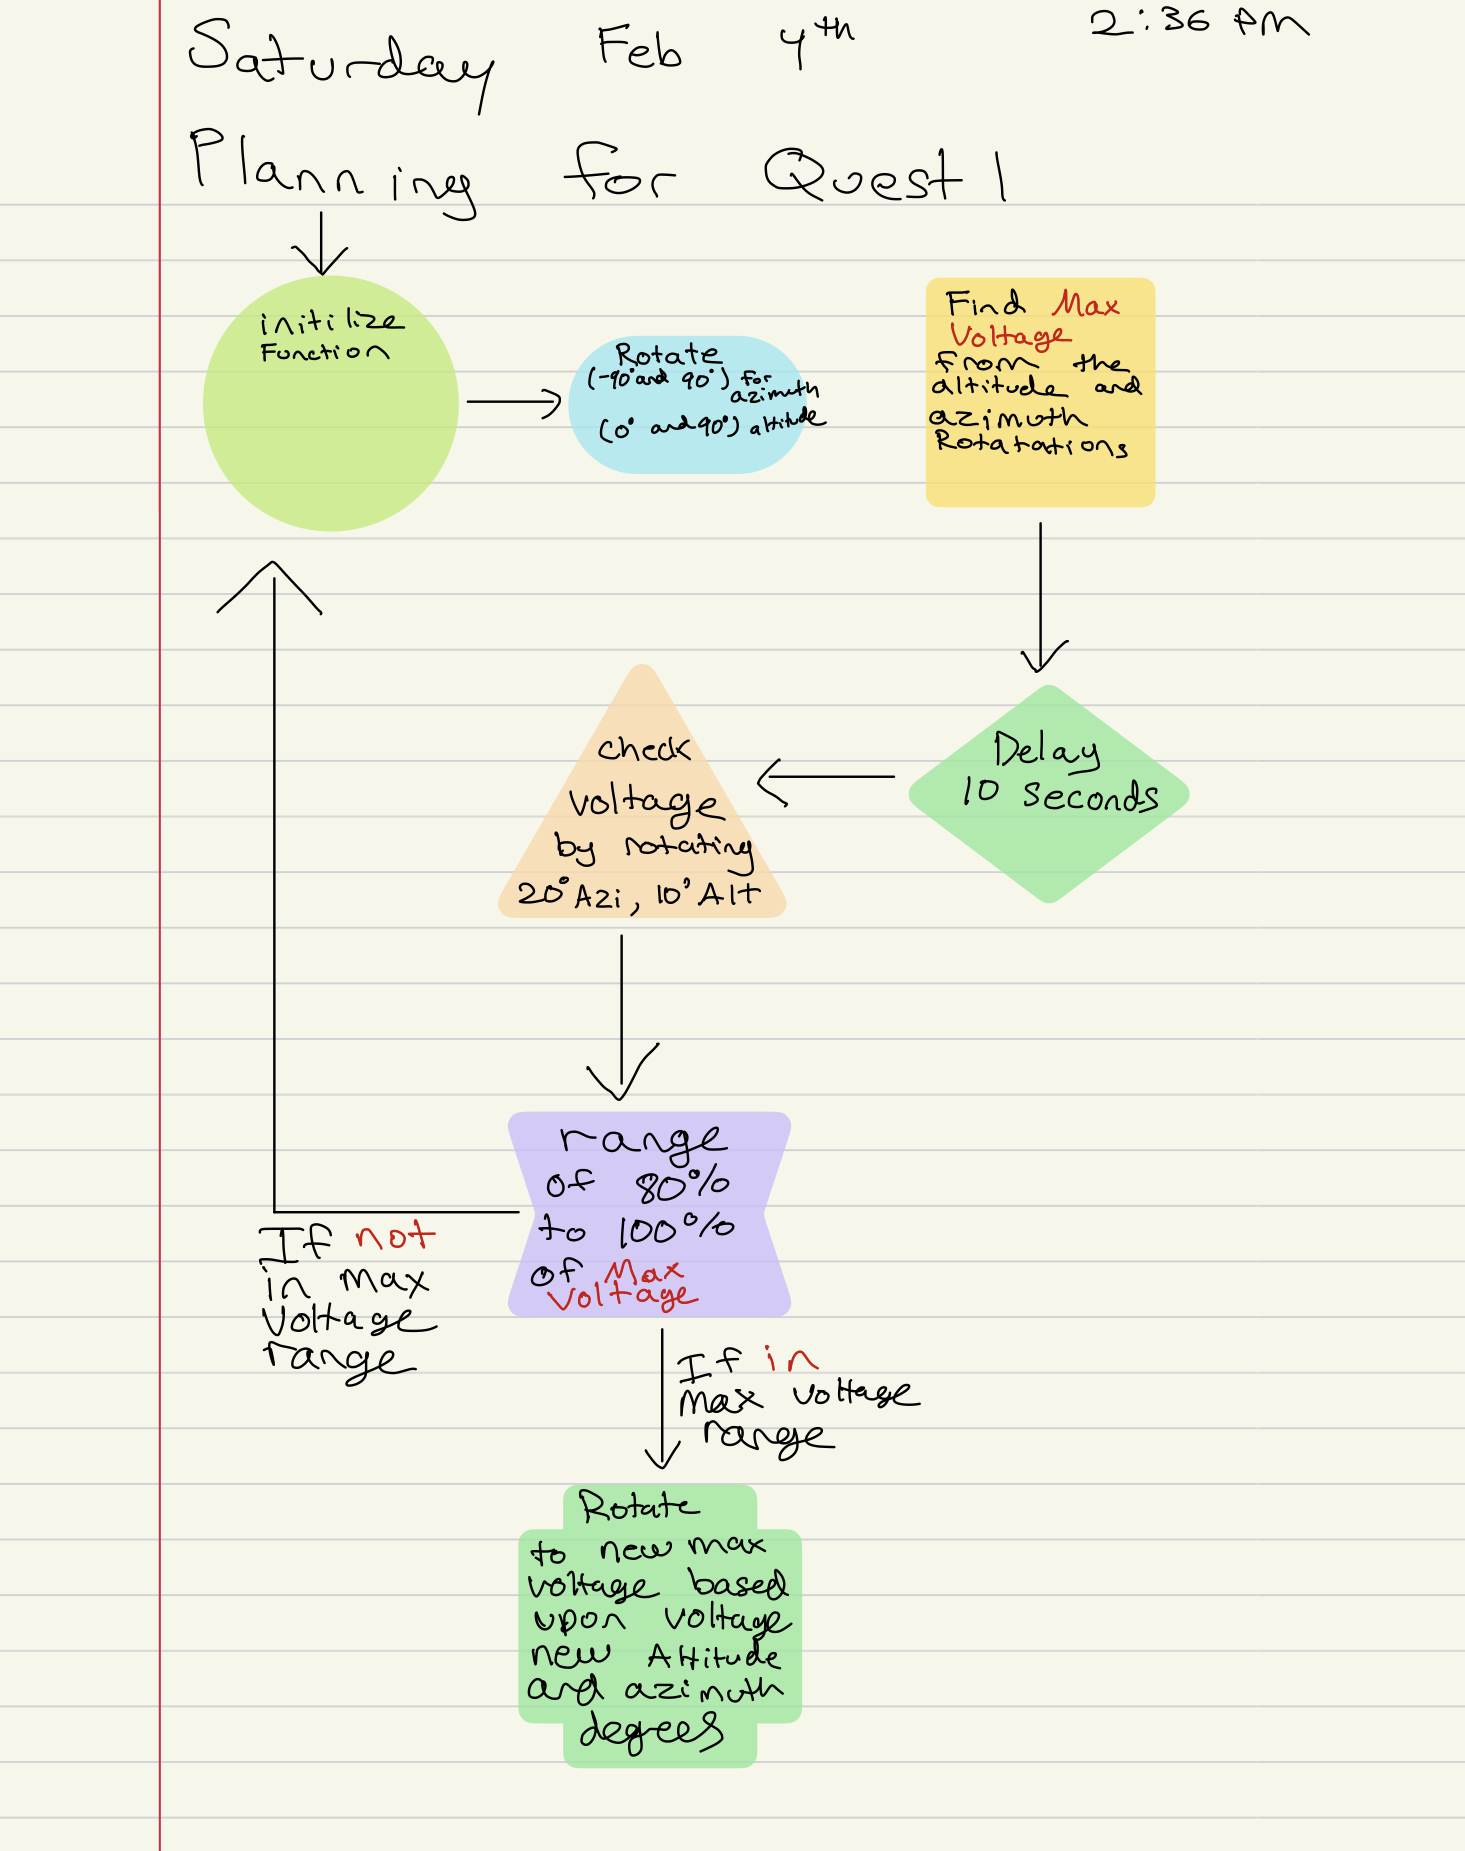 Saturday Feb 4th 2:36 PM
Planning for Quest 1
initilize
Function
Rotate
(-90° and 90°) for
azimuth
(0° and 90°) altitude
Find Max
Voltage
from the
altitude and
azimuth
Rotatations
Delay
10 seconds
check
voltage
by rotating
20° Azi, 10° Alt
range
of 80%
to 100%
of Max
Voltage
If not
in max
voltage
range
If in
max voltage
range
Rotate
to new max
voltage based
upon voltage
new Altitude
and azimuth
degrees